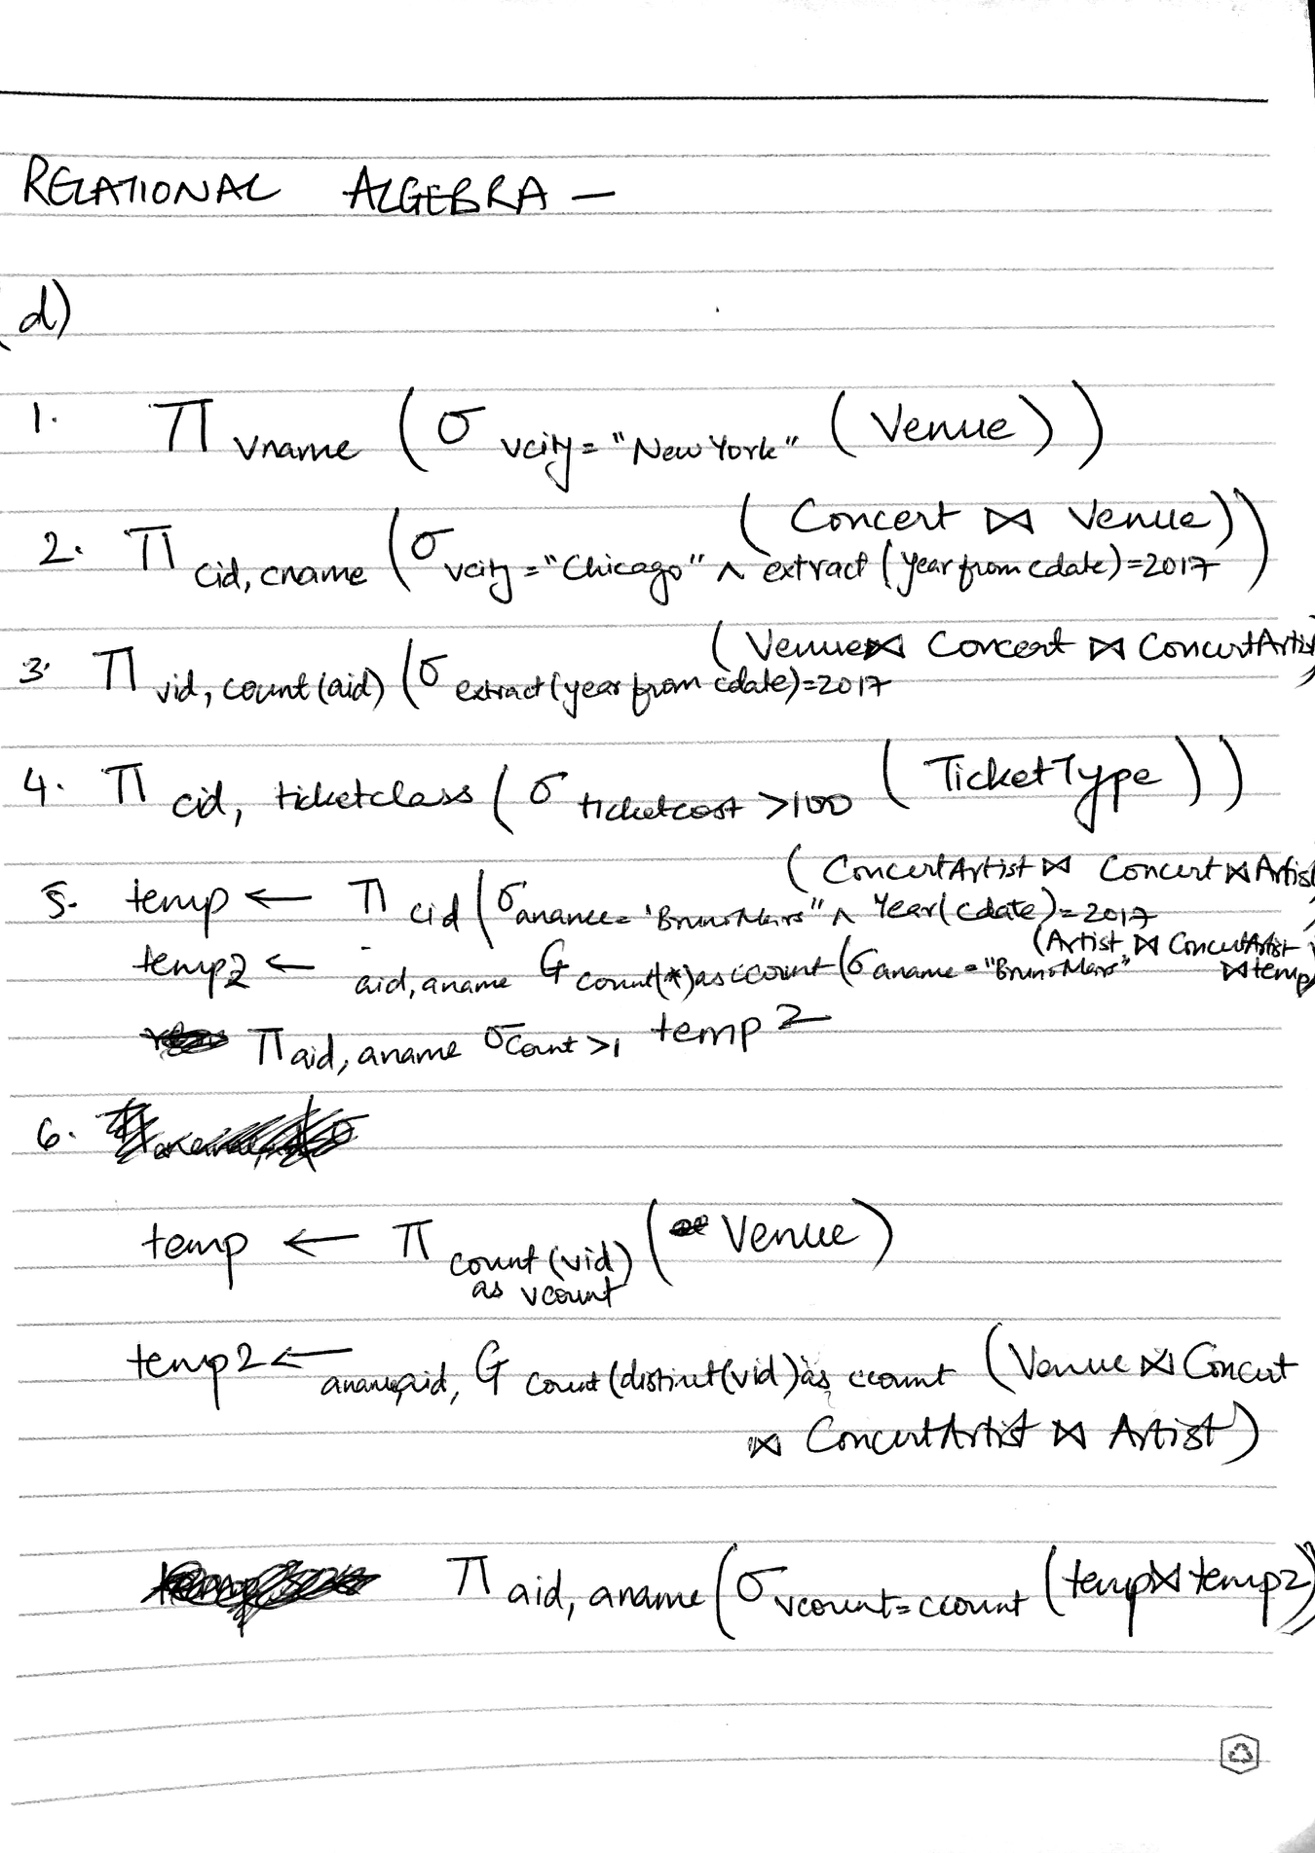 RELATIONAL ALGEBRA —
(d)
1. π vname (σ vcity = "New York" (Venue))
2. π cid, cname (σ vcity = "Chicago" ∧ extract (year from cdate) = 2017 (Concert ⋈ Venue))
3. π vid, count(aid) (σ extract(year from cdate)=2017 (Venue ⋈ Concert ⋈ ConcertArtis
4. π cid, ticketclass (σ ticketcost >100 (TicketType))
5. temp ← π cid (σ aname = 'Bruno Mars" ∧ Year(cdate)=2017 (ConcertArtist ⋈ Concert ⋈ Artis
temp2 ← aid, aname G count(*) as ccount (σ aname = "Bruno Mars" (Artist ⋈ ConcertArtist ⋈ temp)
π aid, aname σ count >1 temp2
6.
temp ← π count(vid) as vcount (Venue)
temp2 ← aname, aid, G count(distinct(vid) as ccount (Venue ⋈ Concert
⋈ ConcertArtist ⋈ Artist)
π aid, aname (σ vcount = ccount (temp ⋈ temp2))